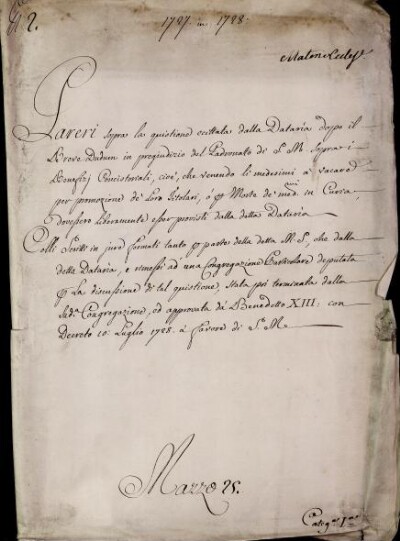 N. 2.
1727. in 1728.
Materie Eccles.
Pareri sopra la quistione eccitata dalla Dataria dopo il
Breve Dudum in pregiudizio del Padronato di S. M. sopra i
Benefizj Concistoriali, cioè, che venendo li medesimi a vacare
per promozione de' loro titolari, ò per Morte de' medmi in Curia,
dovessero liberamente esser provisti dalla detta Dataria
Colli Scritti in jure formati tanto per parte della detta M. S., che dalla
detta Dataria, e rimessi ad una Congregazione Particolare deputata
per la discussione di tal quistione, stata poi terminata dalla
sud.a Congregazione, ed approvata da Benedetto XIII, con
Decreto 10. Luglio 1728. à favore di S. M.
Mazzo 25.
Categ.a I.ma